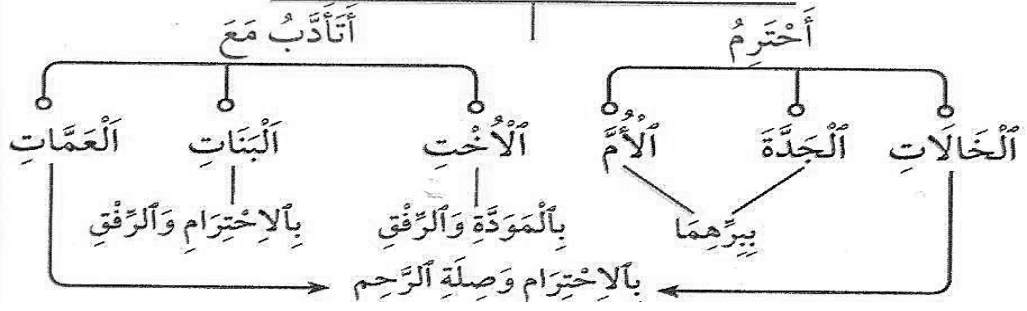 أَحْتَرِمُ أَتَأَدَّبُ مَعَ
ٱلْخَالَاتِ ٱلْجَدَّةَ ٱلْأُمَّ ٱلْأُخْتِ اَلْبَنَاتِ اَلْعَمَّاتِ
بِبِرِّهِمَا بِٱلْمَوَدَّةِ وَٱلرِّفْقِ بِٱلِاحْتِرَامِ وَٱلرِّفْقِ
بِٱلِاحْتِرَامِ وَصِلَةِ ٱلرَّحِم